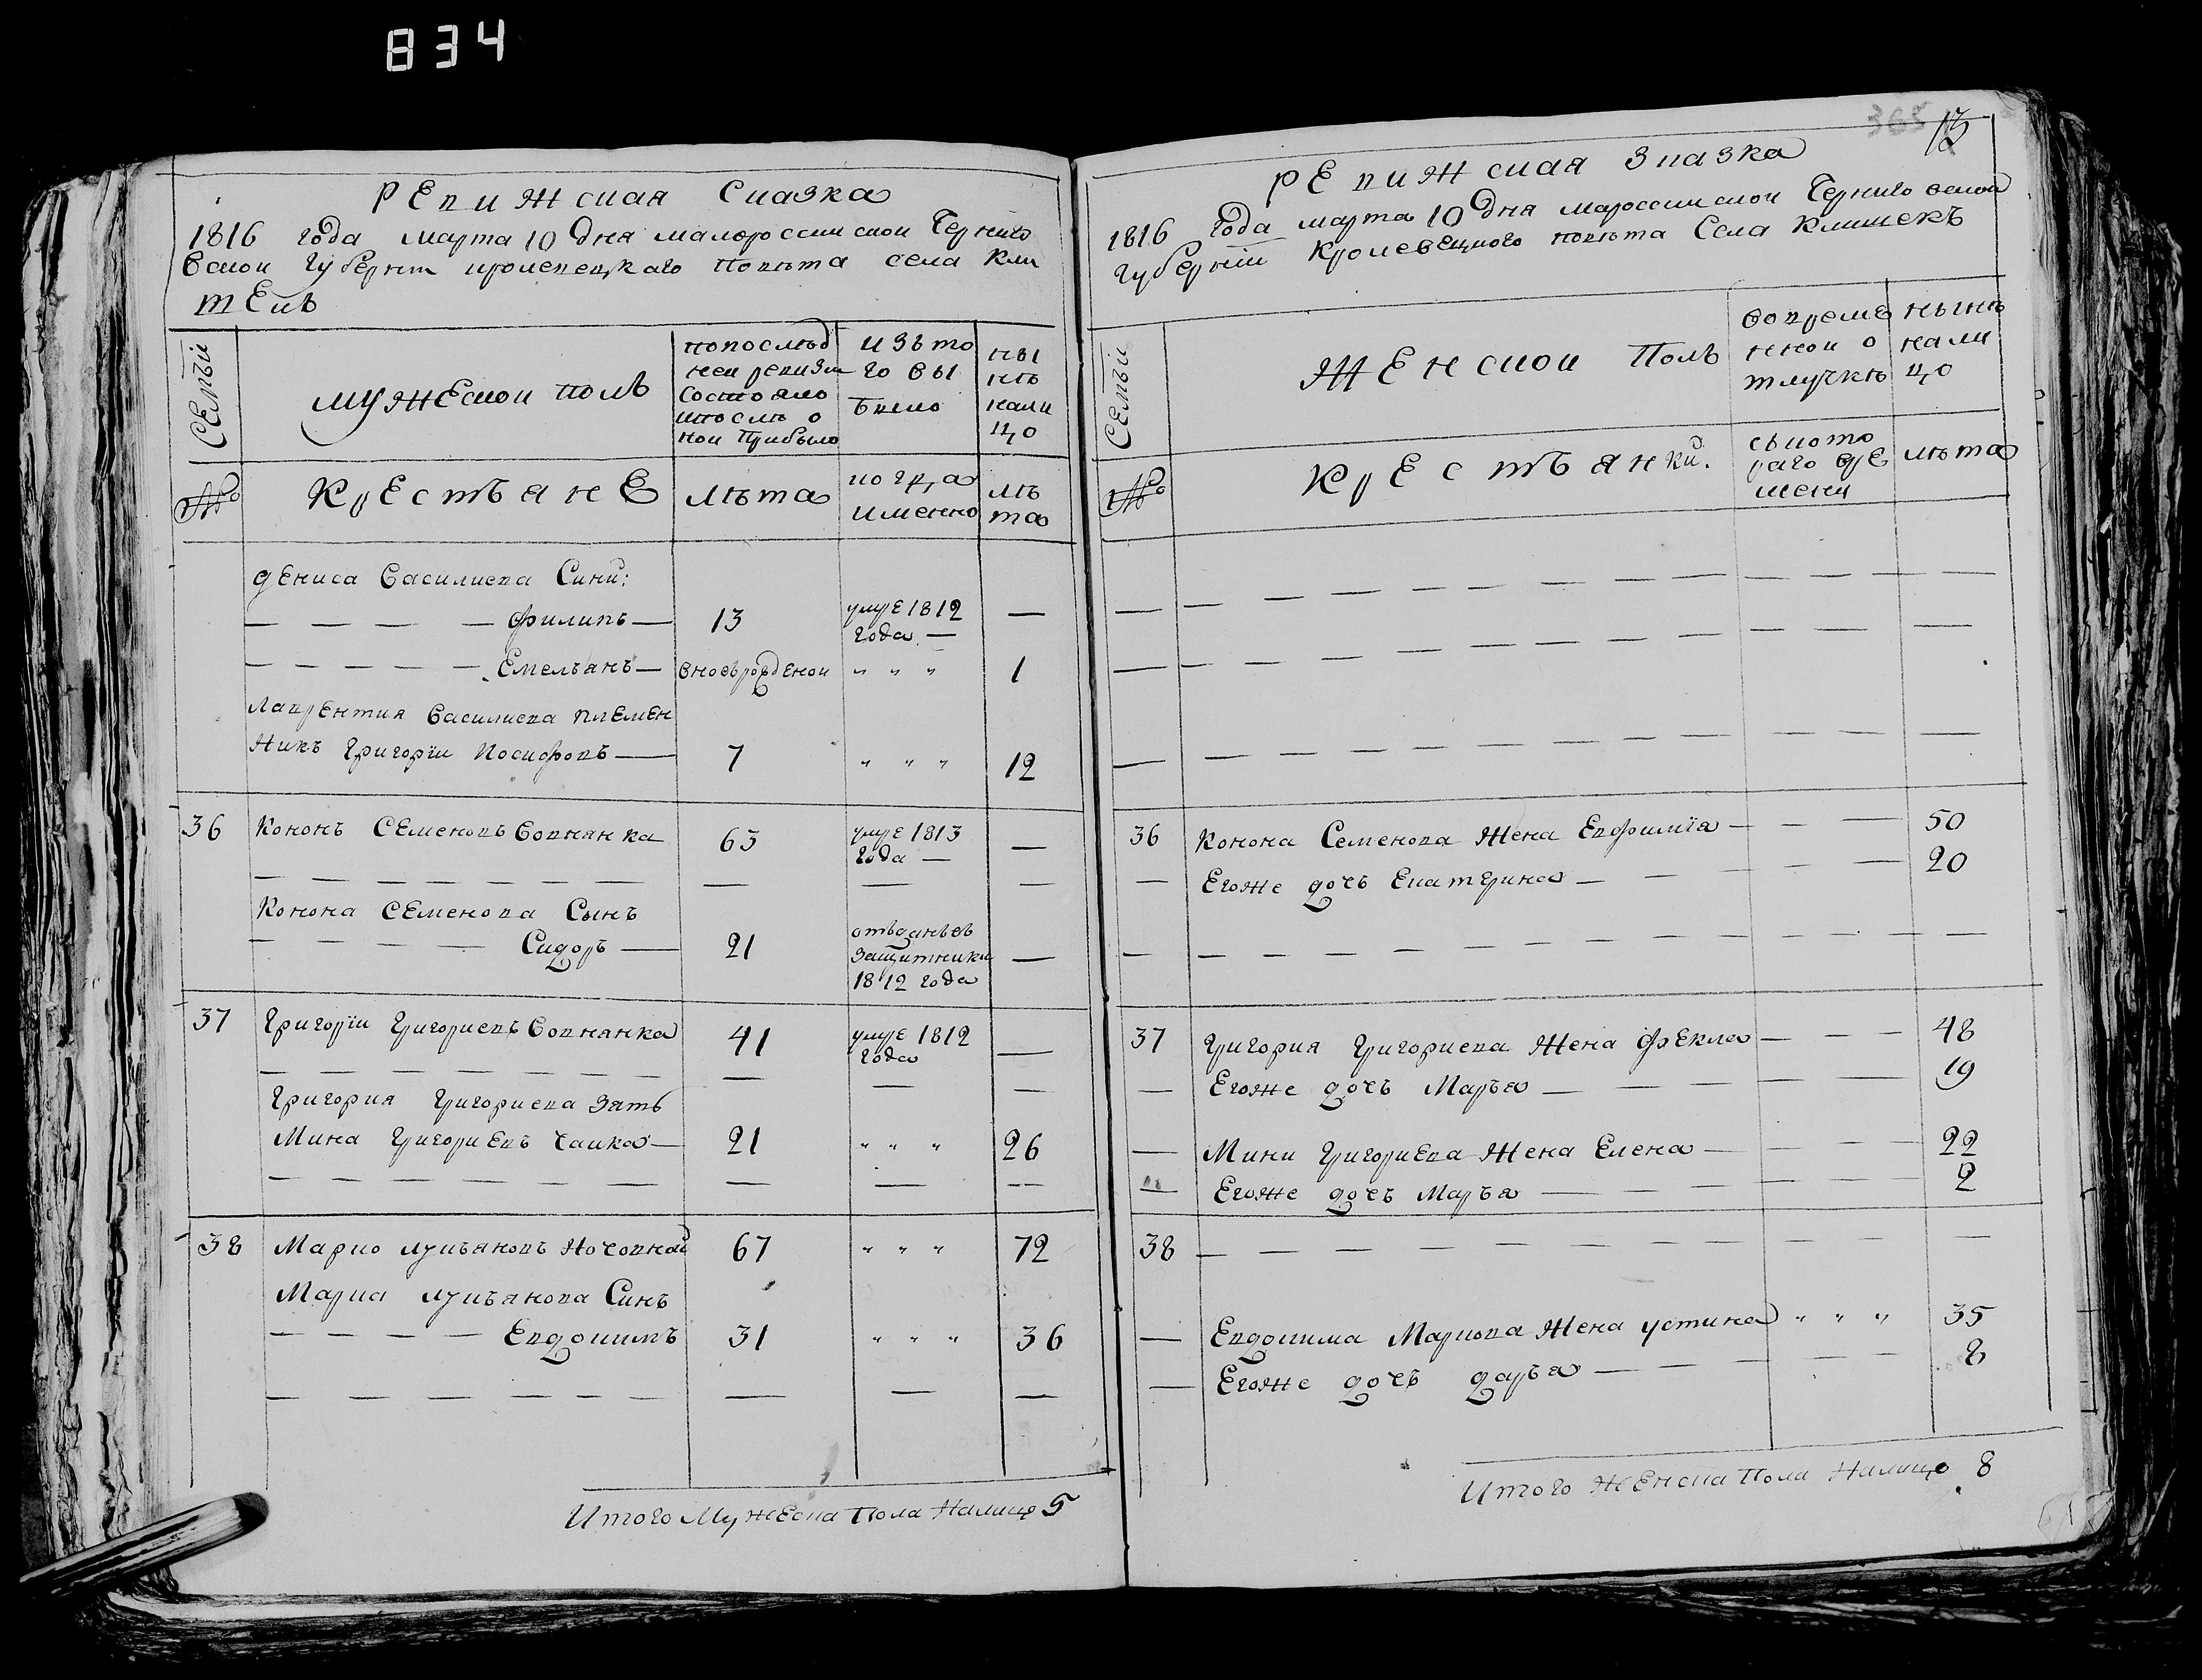 834
Ревижская Сказка
1816 года марта 10 дня малороссийской Черниго
вской губернiи кролевецкаго повѣта села Кли
шекъ
Семьи
мужеской полъ
по послѣд
ней ревизи
состояло
и после о
ной прибыло
изъ то
го вы
было
ны
нѣ
нали
цо
№
Крестьяне
лѣта
когда
именно
лѣ
та
Дениса Василиева Сини:
Филипъ 13 умре 1812
года —
Емельянъ вновьрожденой " " " 1
Лаврентия Василиева племен
никъ Григорiи Иосифовъ 7 " " " 12
36 Кононъ Семеновъ Вовнянка 63 умре 1813
года —
Конона Семенова Сынъ
Сидоръ 21 отъданъвъ
Защитники
1812 года
37 Григорiи Григориевъ Вовнянка 41 умре 1812
года
Григория Григориева Зять
Мина Григориевъ Чаика 21 " " " 26
38 Марко Лукьяновъ Ночовной 67 " " " 72
Марка Лукьянова Синъ
Евдокимъ 31 " " " 36
Итого Мужеска Пола Налицо 5
365 13
Ревижская Зказка
1816 года марта 10 дня мароссийской Черниговской
губернiи Кролевецкого повѣта Села Клишекъ
Семьи
Женской Полъ
во време
нной о
тлучкѣ
нынѣ
нали
цо
№
Крестьянки.
съ кото
раго вре
мени
лѣта
36 Конона Семенова Жена Евфимiа 50
Егоже дочъ Екатерина 20
37 Григория Григориева Жена Фекла 48
Егоже дочъ Марья 19
Мини Григориева Жена Елена 22
Егоже дочъ Марья 2
38
Евдокима Маркова Жена Устина " " " 35
Егоже дочъ Дарья 8
Итого Женска Пола Налицо 8